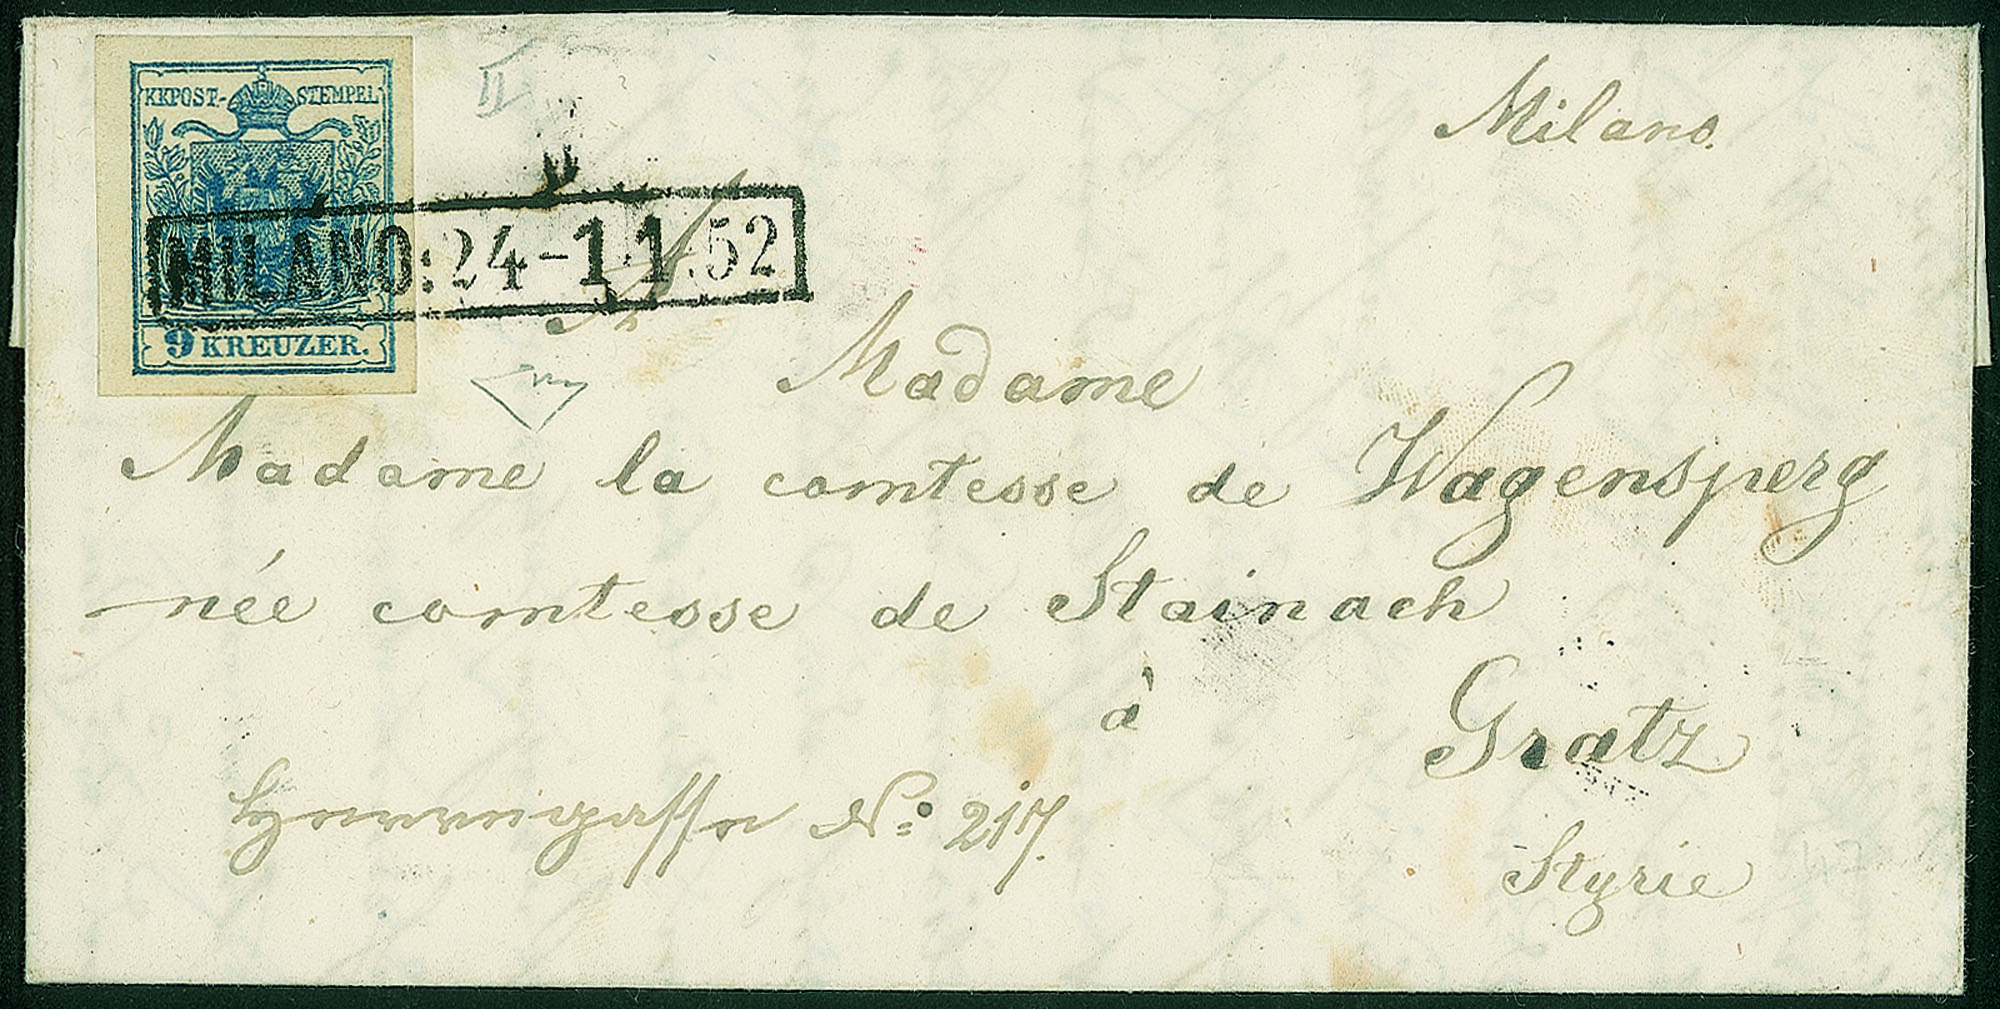 KKPOST-STEMPEL
MILANO: 24-11.52
9 KREUZER.
II
Milano.
Madame
Madame la comtesse de Wagensperg
née comtesse de Stainach
à Gratz
Herrengasse No: 217.
Styrie